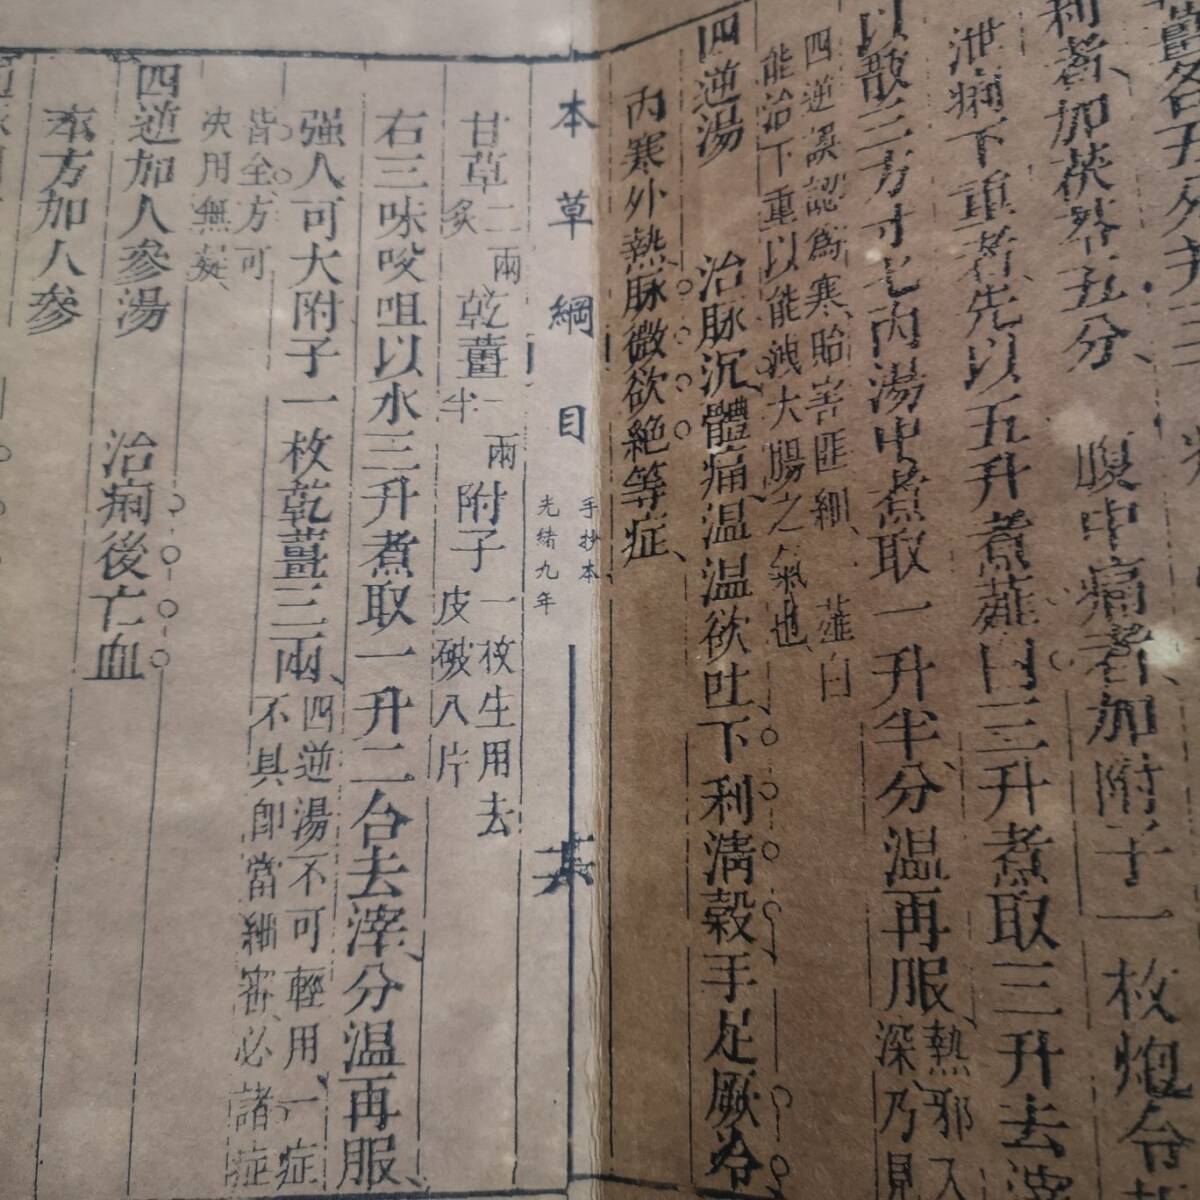 薑各五分并主
利者、加茯苓五分、 腹中痛者、加附子一枚炮令
泄痢下重者、先以五升煮薤白三升煮取三升去滓
以散三方寸匕內湯中煮取一升半分温再服、熱邪入
深、乃見
四逆誤認爲寒、貽害匪細、 薤白
能治下重以能洩大腸之氣也、
四逆湯 治脉沉、體痛、温温欲吐、下利清穀、手足厥冷
內寒外熱、脉微欲絶等症、
本草綱目
手抄本
光緒九年
甘草二兩炙 乾薑一兩半 附子一枚生用去皮破八片
右三味㕮咀以水三升煮取一升二合去滓、分温再服、
强人可大附子一枚乾薑三兩、四逆湯不可輕用、一症
不具卽當細審、必諸症
皆全、方可
决用無疑、
四逆加人參湯 治痢後亡血
本方加人參